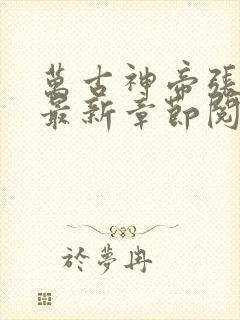 萬古神帝張
最新章節閱
於夢冉